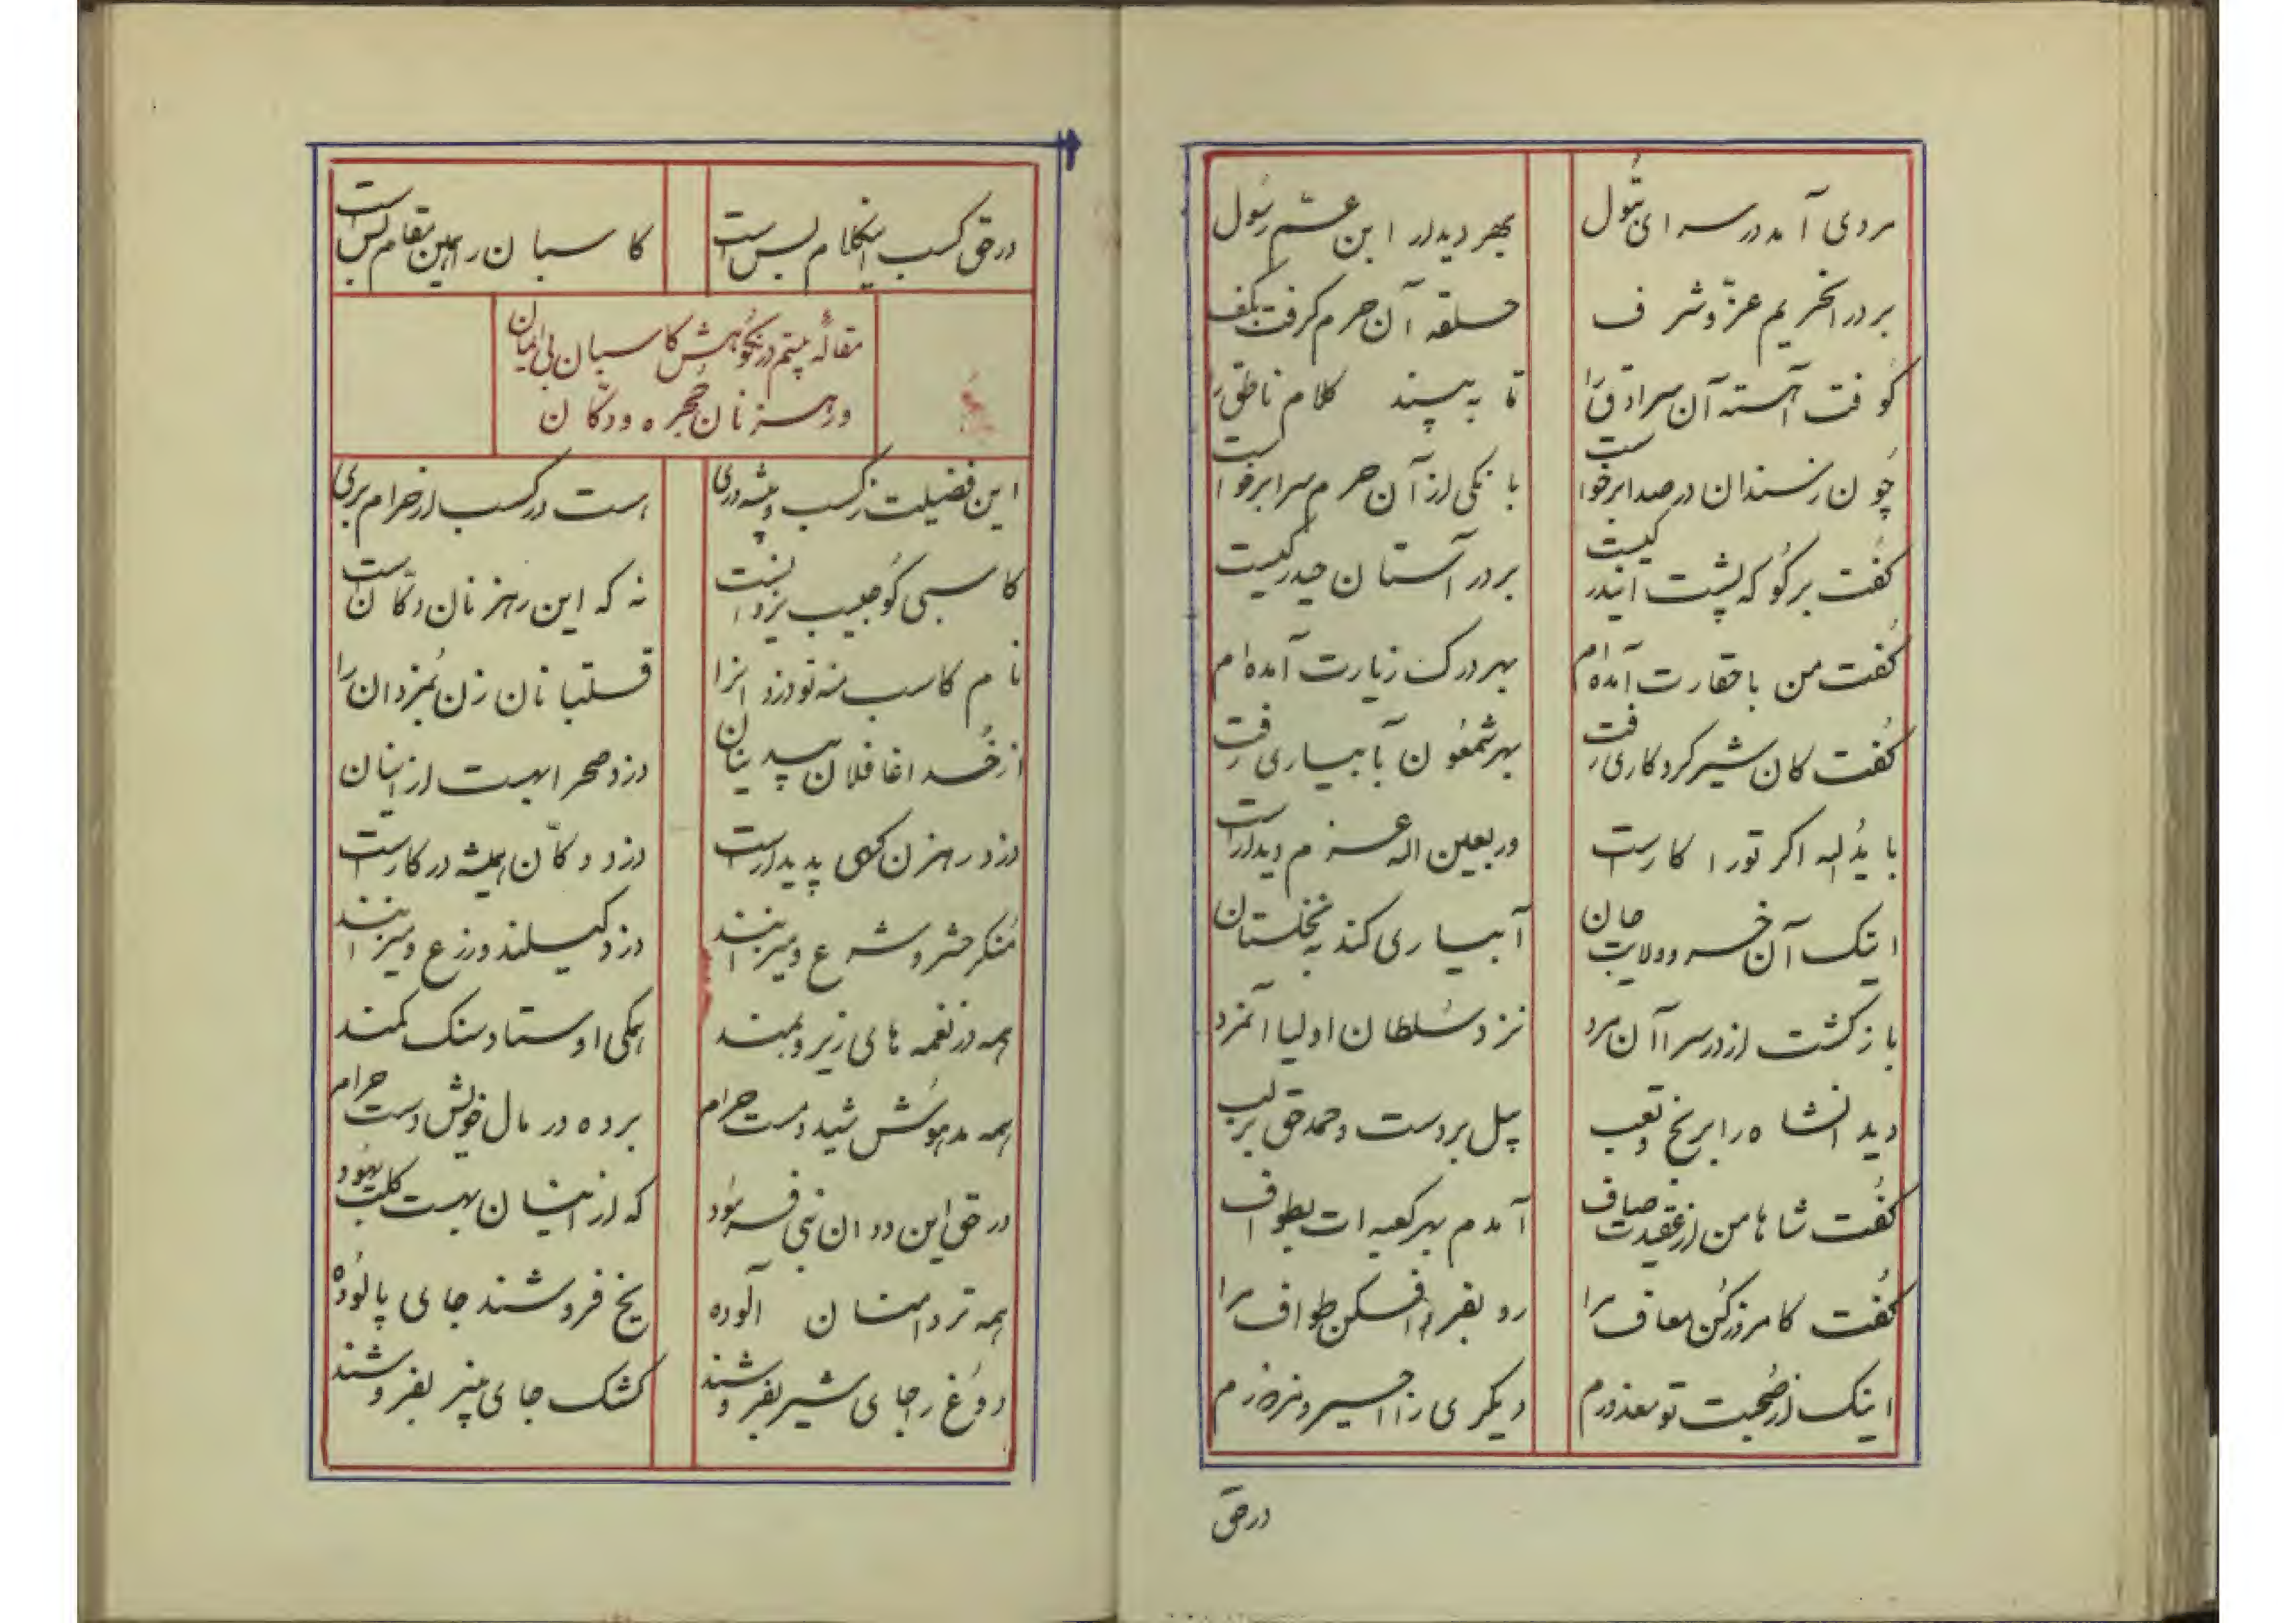 مردی آمد در سرای بتول
بهر دیدار ابن عم رسول
بر در آنحریم عز و شرف
حلقه آن حرم گرفت بکف
کوفت آهسته آن سرادق را
تا به بیند کلام ناطق را
چون ز سندان در صدا برخواست
بانکی از آن حرم سرا برخواست
گفت برگو که پشت ایندر کیست
بر در آستان حیدر کیست
گفت من با حقارت آمده‌ام
بهر درک زیارت آمده‌ام
گفت کان شیر کردکاری رفت
بهر شمعون بآبیاری رفت
با یداله اگر تو را کار است
ور بعین اله عزم دیدار است
اینک آن خسرو ولایت جان
آبیاری کند به نخلستان
بازگشت از در سرا آن مرد
نزد سلطان اولیا آنمرد
دید آنشاه را برنج و تعب
بیل بر دست و حمد حق بر لب
گفت شاها من از عقیدت صاف
آمدم بهر کعبه‌ات بطواف
گفت کامروز کن معاف مرا
رو بفردا فکن طواف مرا
اینک از صحبت تو معذورم
دیگری را اسیر و مزدورم
درحق
درحق کسب اینکلام بس است
کاسبان را همین مقام بس است
مقاله بیستم در نکوهش کاسبان بی ایمان
و رهزنان حجره و دکان
این فضیلت ز کسب و پیشه‌وری
هست در کسب از حرام بری
کاسبی کو حبیب یزدانست
نه که این رهزنان دکانست
نام کاسب منه تو دزدانرا
قلتبانان زن بمزدان را
از خدا غافلان بیدینان
دزد صحرا بهست از اینان
دزد رهزن گهی پدیدار است
دزد دکان همیشه در کار است
منکر حشر و شرع و میزانند
دزد کیلند و زرع و میزانند
همه در نغمه های زیر و بمند
همگی اوستاد سنک کمند
همه مدهوش شید و مست حرام
برده در مال خویش دست حرام
در حق این ددان نبی فرمود
که از اینان بهست کلب یهود
همه تردامنان آلوده
یخ فروشند جای پالوده
دوغ را جای شیر بفروشند
کشک جای پنیر بفروشند